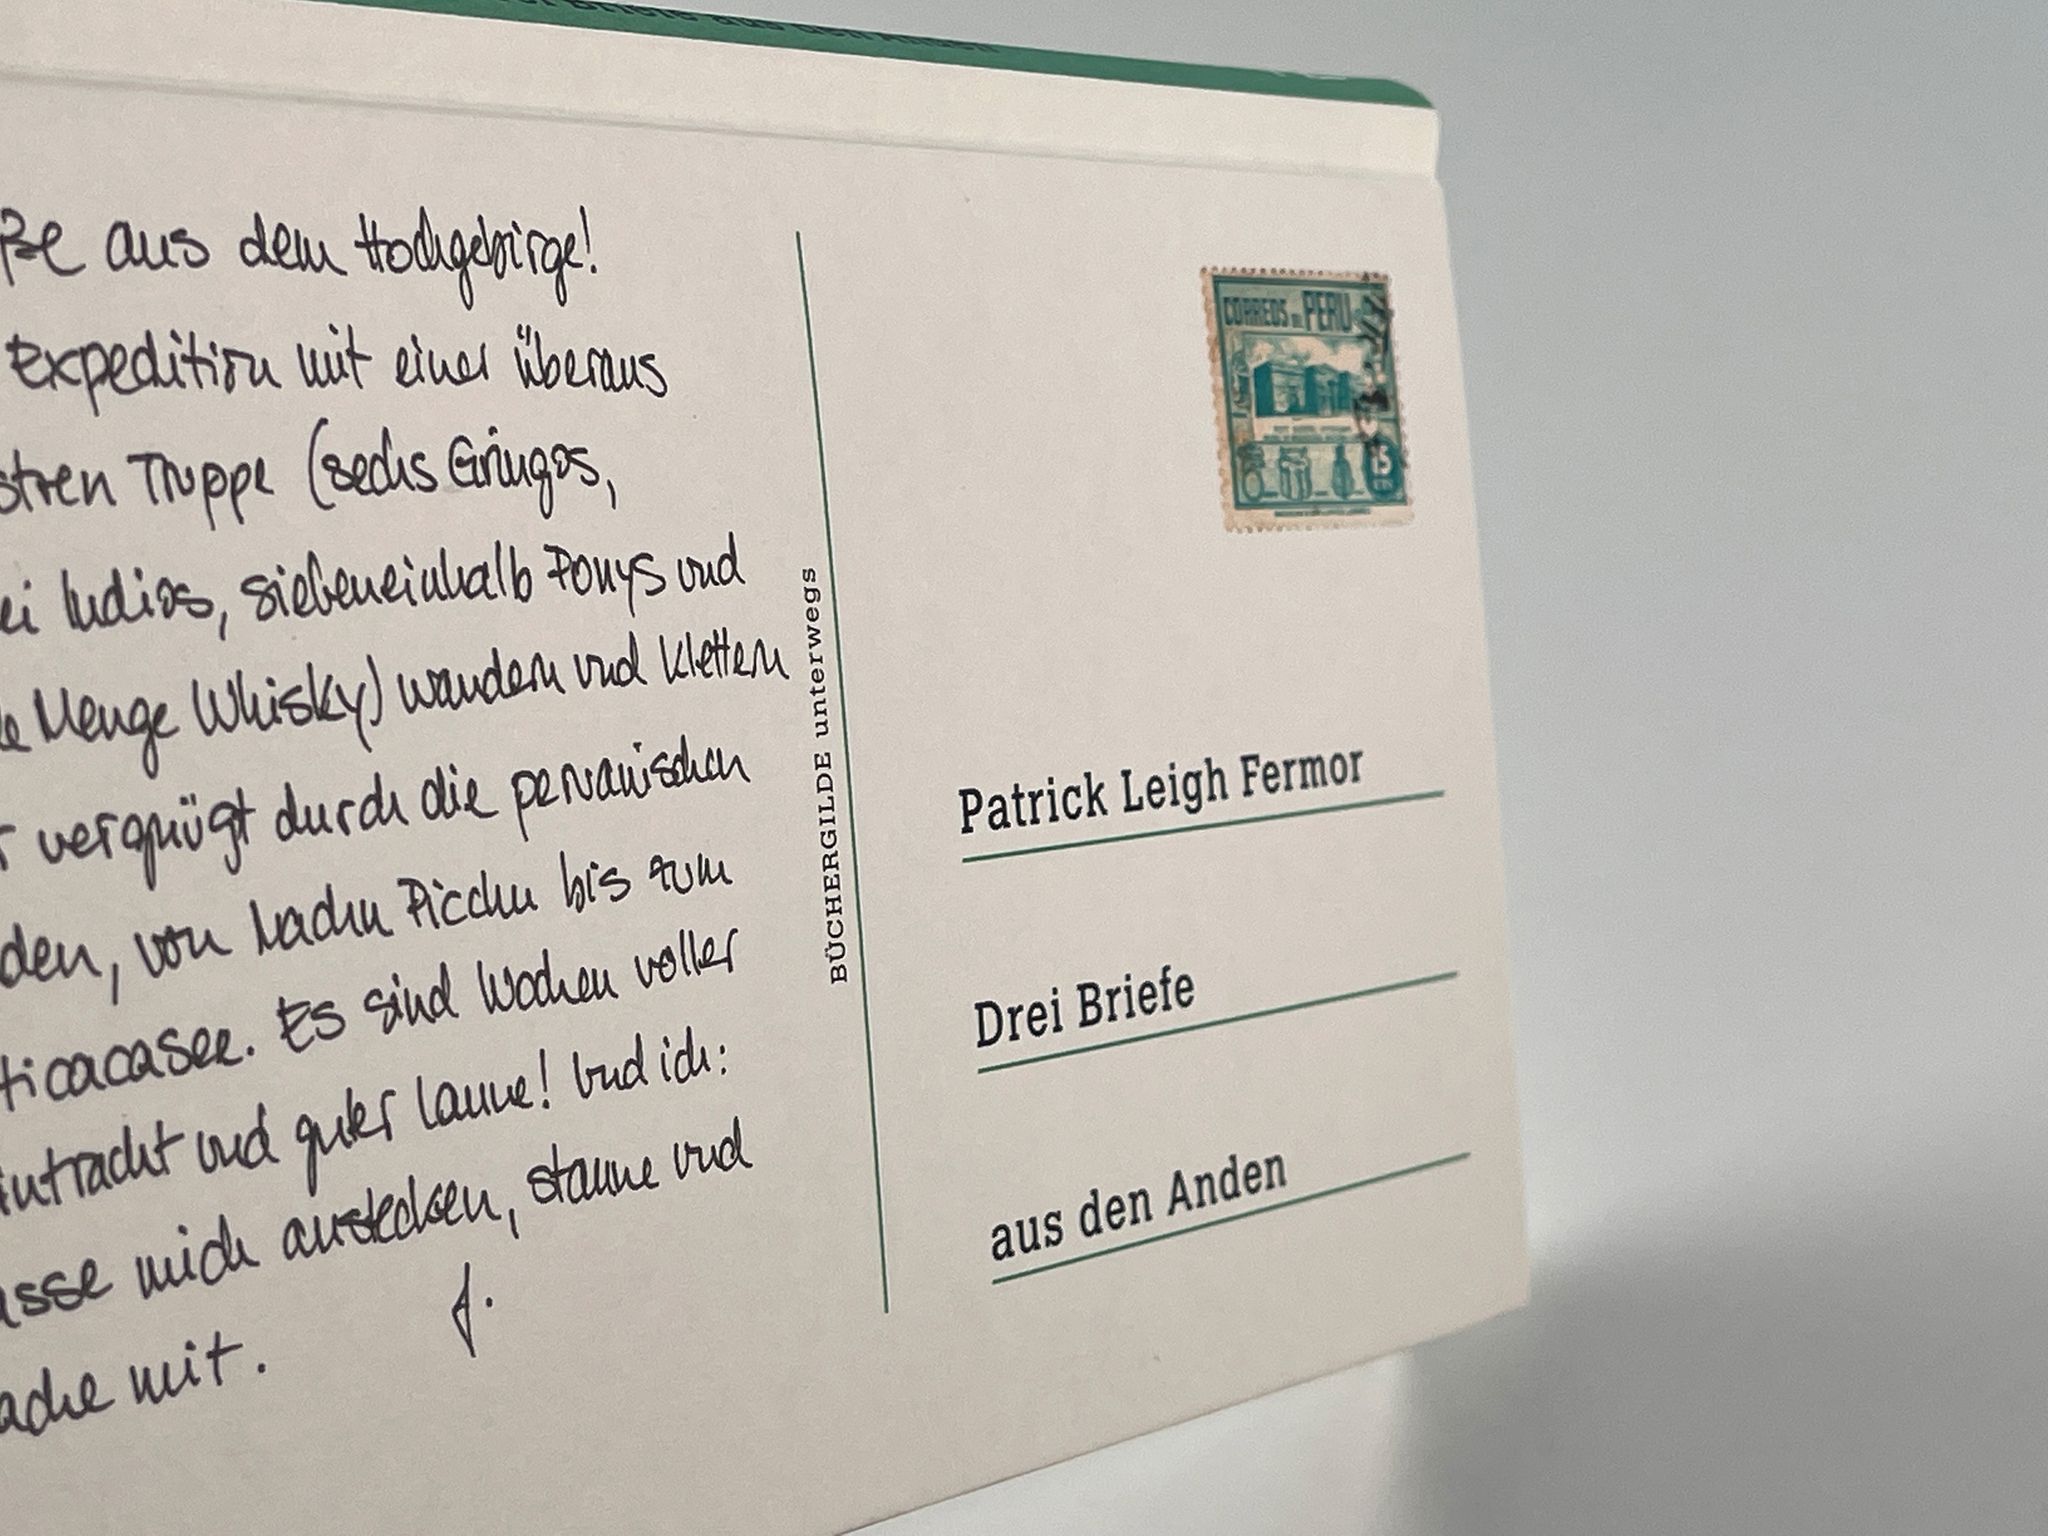 Briefe aus den Anden
ße aus dem Hochgebirge!
Expedition mit einer überaus
stren Truppe (sechs Gringos,
ei Indios, siebeneinhalb Ponys und
e Menge Whisky) wandern und klettern
r vergnügt durch die peruanischen
den, von Machu Picchu bis zum
ticacasee. Es sind Wochen voller
intracht und guter Laune! Und ich:
asse mich anstecken, staune und
ache mit.
f.
BÜCHERGILDE unterwegs
CORREOS DE PERU
15
Patrick Leigh Fermor
Drei Briefe
aus den Anden